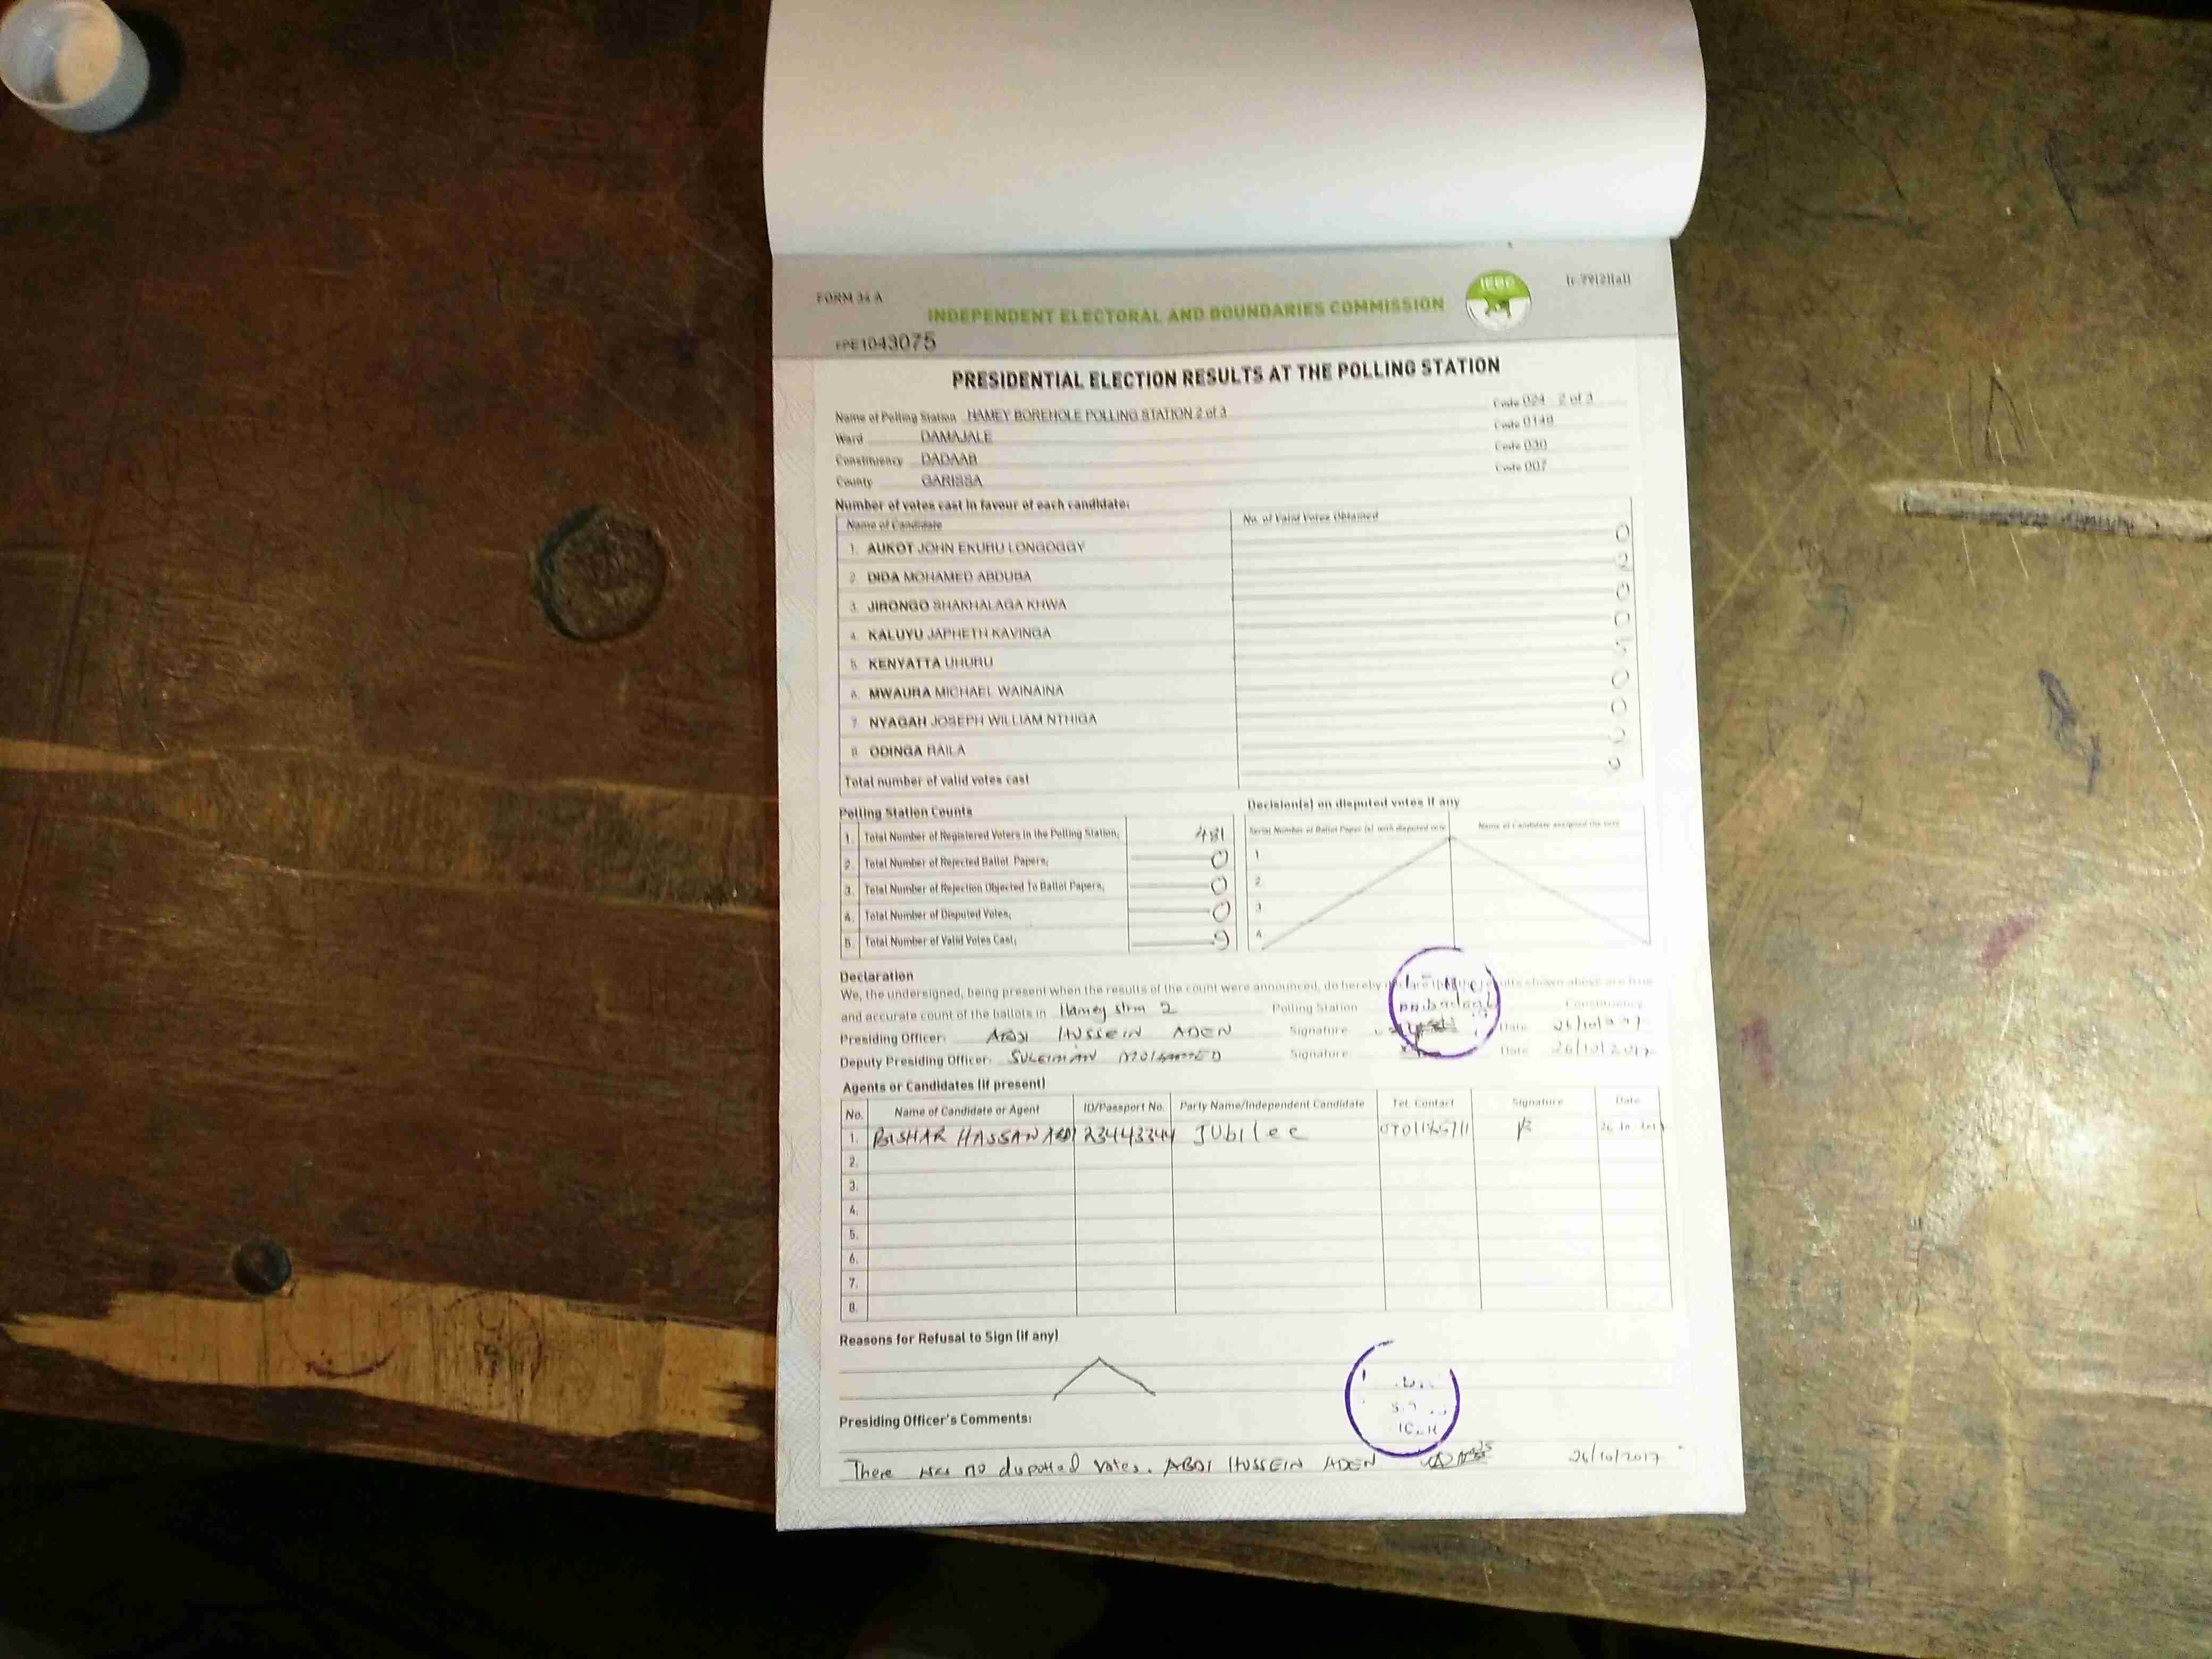 FORM 34 A
(r.79(2)(a))
INDEPENDENT ELECTORAL AND BOUNDARIES COMMISSION
IEBC
1043075
PRESIDENTIAL ELECTION RESULTS AT THE POLLING STATION
Name of Polling Station HAMEY BOREHOLE POLLING STATION 2 of 3 Code 024 2 of 3
Ward DAMAJALE Code 0149
Constituency DADAAB Code 030
County GARISSA Code 007
Number of votes cast in favour of each candidate:
Name of Candidate No. of Valid Votes Obtained
1. AUKOT JOHN EKURU LONGOGGY 0
2. DIDA MOHAMED ABDUBA 2
3. JIRONGO SHAKHALAGA KHWA 0
4. KALUYU JAPHETH KAVINGA 0
5. KENYATTA UHURU 5
6. MWAURA MICHAEL WAINAINA 0
7. NYAGAH JOSEPH WILLIAM NTHIGA 0
8. ODINGA RAILA 2
Total number of valid votes cast 9
Polling Station Counts
1. Total Number of Registered Voters in the Polling Station; 481
2. Total Number of Rejected Ballot Papers; 0
3. Total Number of Rejection Objected To Ballot Papers; 0
4. Total Number of Disputed Votes; 0
5. Total Number of Valid Votes Cast; 9
Decision(s) on disputed votes if any
Serial Number of Ballot Paper (s) with disputed vote Name of Candidate assigned the vote
1
2
3
4
Declaration
We, the undersigned, being present when the results of the count were announced, do hereby declare that the results shown above are true
and accurate count of the ballots in Hamey strm 2 Polling Station Constituency
Presiding Officer: ABDI HUSSEIN ADEN Signature Date 26/10/2017
Deputy Presiding Officer: SULEIMAN MOHAMED Signature Date 26/10/2017
Agents or Candidates (if present)
No. Name of Candidate or Agent ID/Passport No. Party Name/Independent Candidate Tel. Contact Signature Date
1. BISHAR HASSAN ABDI 23443344 Jubilee
2.
3.
4.
5.
6.
7.
8.
Reasons for Refusal to Sign (if any)
Presiding Officer's Comments:
There was no disputed votes. ABDI HUSSEIN ADEN 26/10/2017